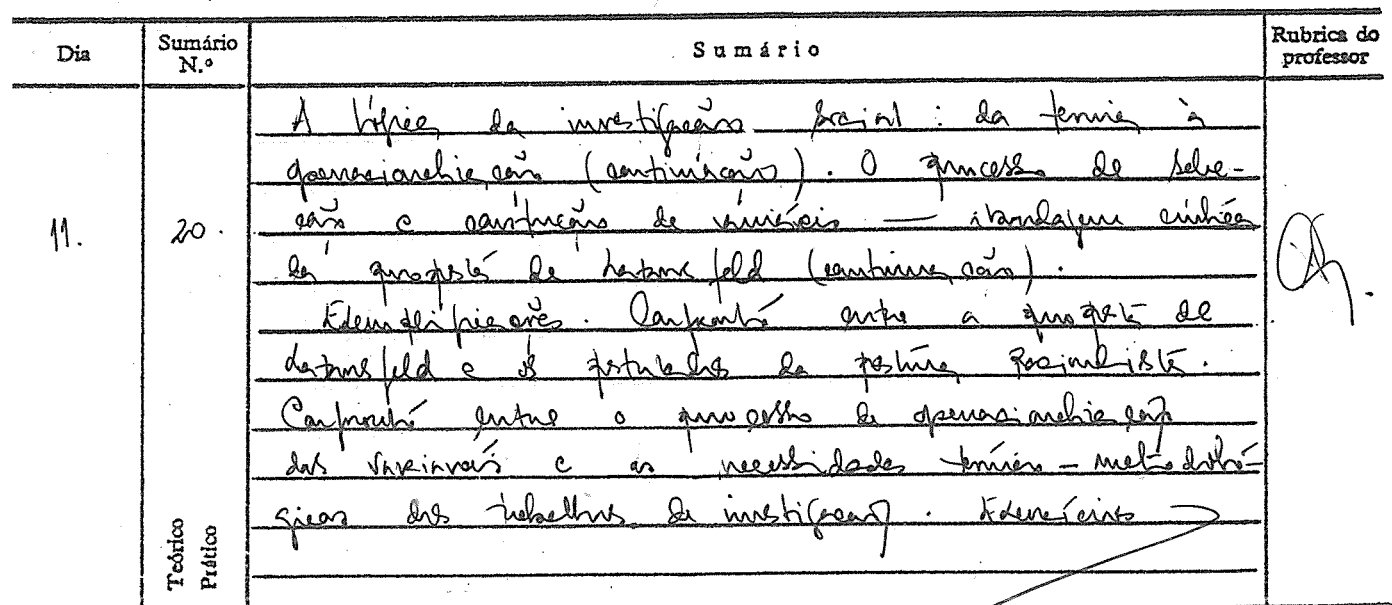 Dia
Sumário N.º
Sumário
Rubrica do professor
11.
20.
A lógica da investigação social : da teoria à
operacionalização (continuação). O processo de selec-
ção e construção de variáveis — abordagem crítica
da proposta de Lazarsfeld (continuação).
Exemplificações. Confronto entre a proposta de
Lazarsfeld e os postulados da postura
Confronto entre o processo de operacionalização
das variáveis e as necessidades teórico-metodoló-
gicas dos trabalhos de investigação. Exercícios
Teórico
Prático